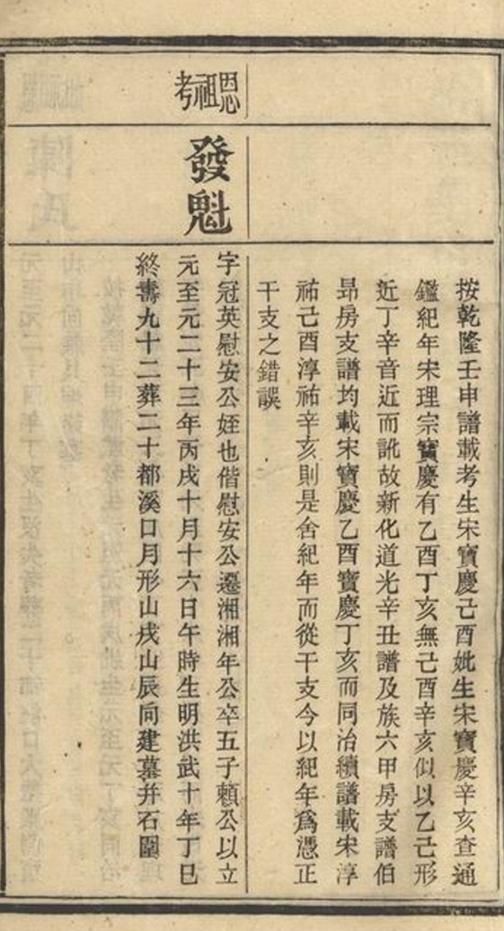 按乾隆壬申譜載考生宋寶慶己酉妣生宋寶慶辛亥查通
鑑紀年宋理宗寶慶有乙酉丁亥無己酉辛亥似以乙己形
近丁辛音近而訛故新化道光辛丑譜及族六甲房支譜伯
昻房支譜均載宋寶慶乙酉寶慶丁亥而同治續譜載宋淳
祐己酉淳祐辛亥則是舍紀年而從干支今以紀年爲憑正
干支之錯誤
恩祖
聰祖考
發魁
字冠英慰安公姪也偕慰安公遷湘湘年公卒五子賴公以立
元至元二十三年丙戌十月十六日午時生明洪武十年丁巳
終壽九十二葬二十都溪口月形山戌山辰向建墓幷石圍